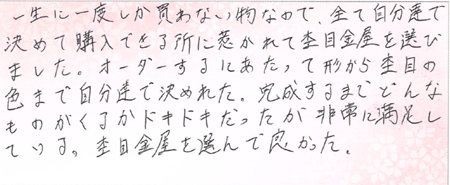 一生に一度しか買わない物なので、全て自分達で
決めて購入できる所に惹かれて杢目金屋を選び
ました。オーダーするにあたって形から杢目の
色まで自分達で決めれた。完成するまでどんな
ものがくるかドキドキだったが非常に満足し
ている。杢目金屋を選んで良かった。